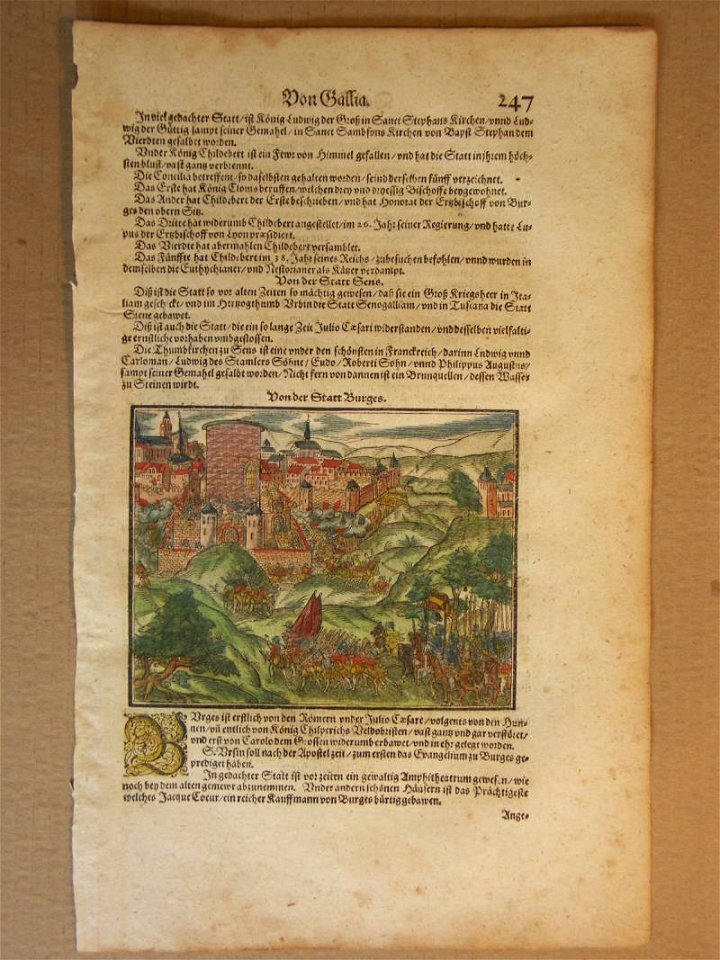 Von Gallia. 247
In viel gedachter Statt/ist König Ludwig der Groß in Sanct Stephans Kirchen/vnnd Lud-
wig der Güttig sampt seiner Gemahel/in Sanct Sambsons Kirchen von Bapst Stephan dem
Vierdten gesalbet worden.
Vnder König Childebert ist ein Fewr von Himmel gefallen/vnd hat die Statt in jhrem höch-
sten blust/vast gantz verbrennt.
Die Concilia betreffent/so daselbsten gehalten worden/seind derselben fünff verzeichnet.
Das Erste hat König beruffen/welchen drey vnd dreyssig Bischoffe beygewohnet.
Das Ander hat Childebert der Erste beschrieben/vnd hat Honorat der Ertzbischoff von Bur-
ges den obern Sitz.
Das Dritte hat widerumb Childebert angestellet/im 26. Jahr seiner Regierung/vnd hatte Lu-
pus der Ertzbischoff von Lyon præsidiert.
Das Vierdte hat abermahlen Childebert versamblet.
Das Fünffte hat Childebert im 38. Jahr seines Reichs/zubesuchen befohlen/vnnd wurden in
demselben die Euthychianer/vnd Nestorianer als Kätzer verdampt.
Von der Statt Sens.
Diß ist die Statt so vor alten Zeiten so mächtig gewesen/daß sie ein Groß Kriegsheer in Ita-
liam geschickt/vnd im Hertzogthumb Vrbin die Statt Senogalliam/vnd in Tuscana die Statt
Siene gebawet.
Diß ist auch die Statt/die ein so lange Zeit Julio Cæsari widerstanden/vnd desselben vielfalti-
ge ernstliche vorhaben vmbgestossen.
Die Thumbkirchen zu Sens ist eine vnder den schönsten in Franckreich/darinn Ludwig vnnd
Carloman/Ludwig des Stamlers Söhne/Eudo/Roberti Sohn/vnnd Philippus Augustus/
sampt seiner Gemahel gesalbt worden/Nicht fern von dannen ist ein Brunquellen/dessen Wasser
zu Steinen wirdt.
Von der Statt Burges.
BVrges ist erstlich von den Römern vnder Julio Cæsare/volgents von den Hun-
nen/vñ entlich von König Chilperichs Veldobristen/vast gantz vnd gar verstöret/
vnd erst von Carolo dem Grossen widerumb erbawet/vnd in ehr gelegt worden.
S. Vrsin soll nach der Apostel zeit/zum ersten das Evangelium zu Burges ge-
prediget haben.
In gedachter Statt ist vor zeiten ein gewaltig Amphitheatrum gewesen/wie
noch bey dem alten gemewr abzunemmen. Vnder andern schönen Häusern ist das Prächtigeste
welches Jacque Coeur/ein reicher Kauffmann von Burges bürtig gebawen.
Ange-